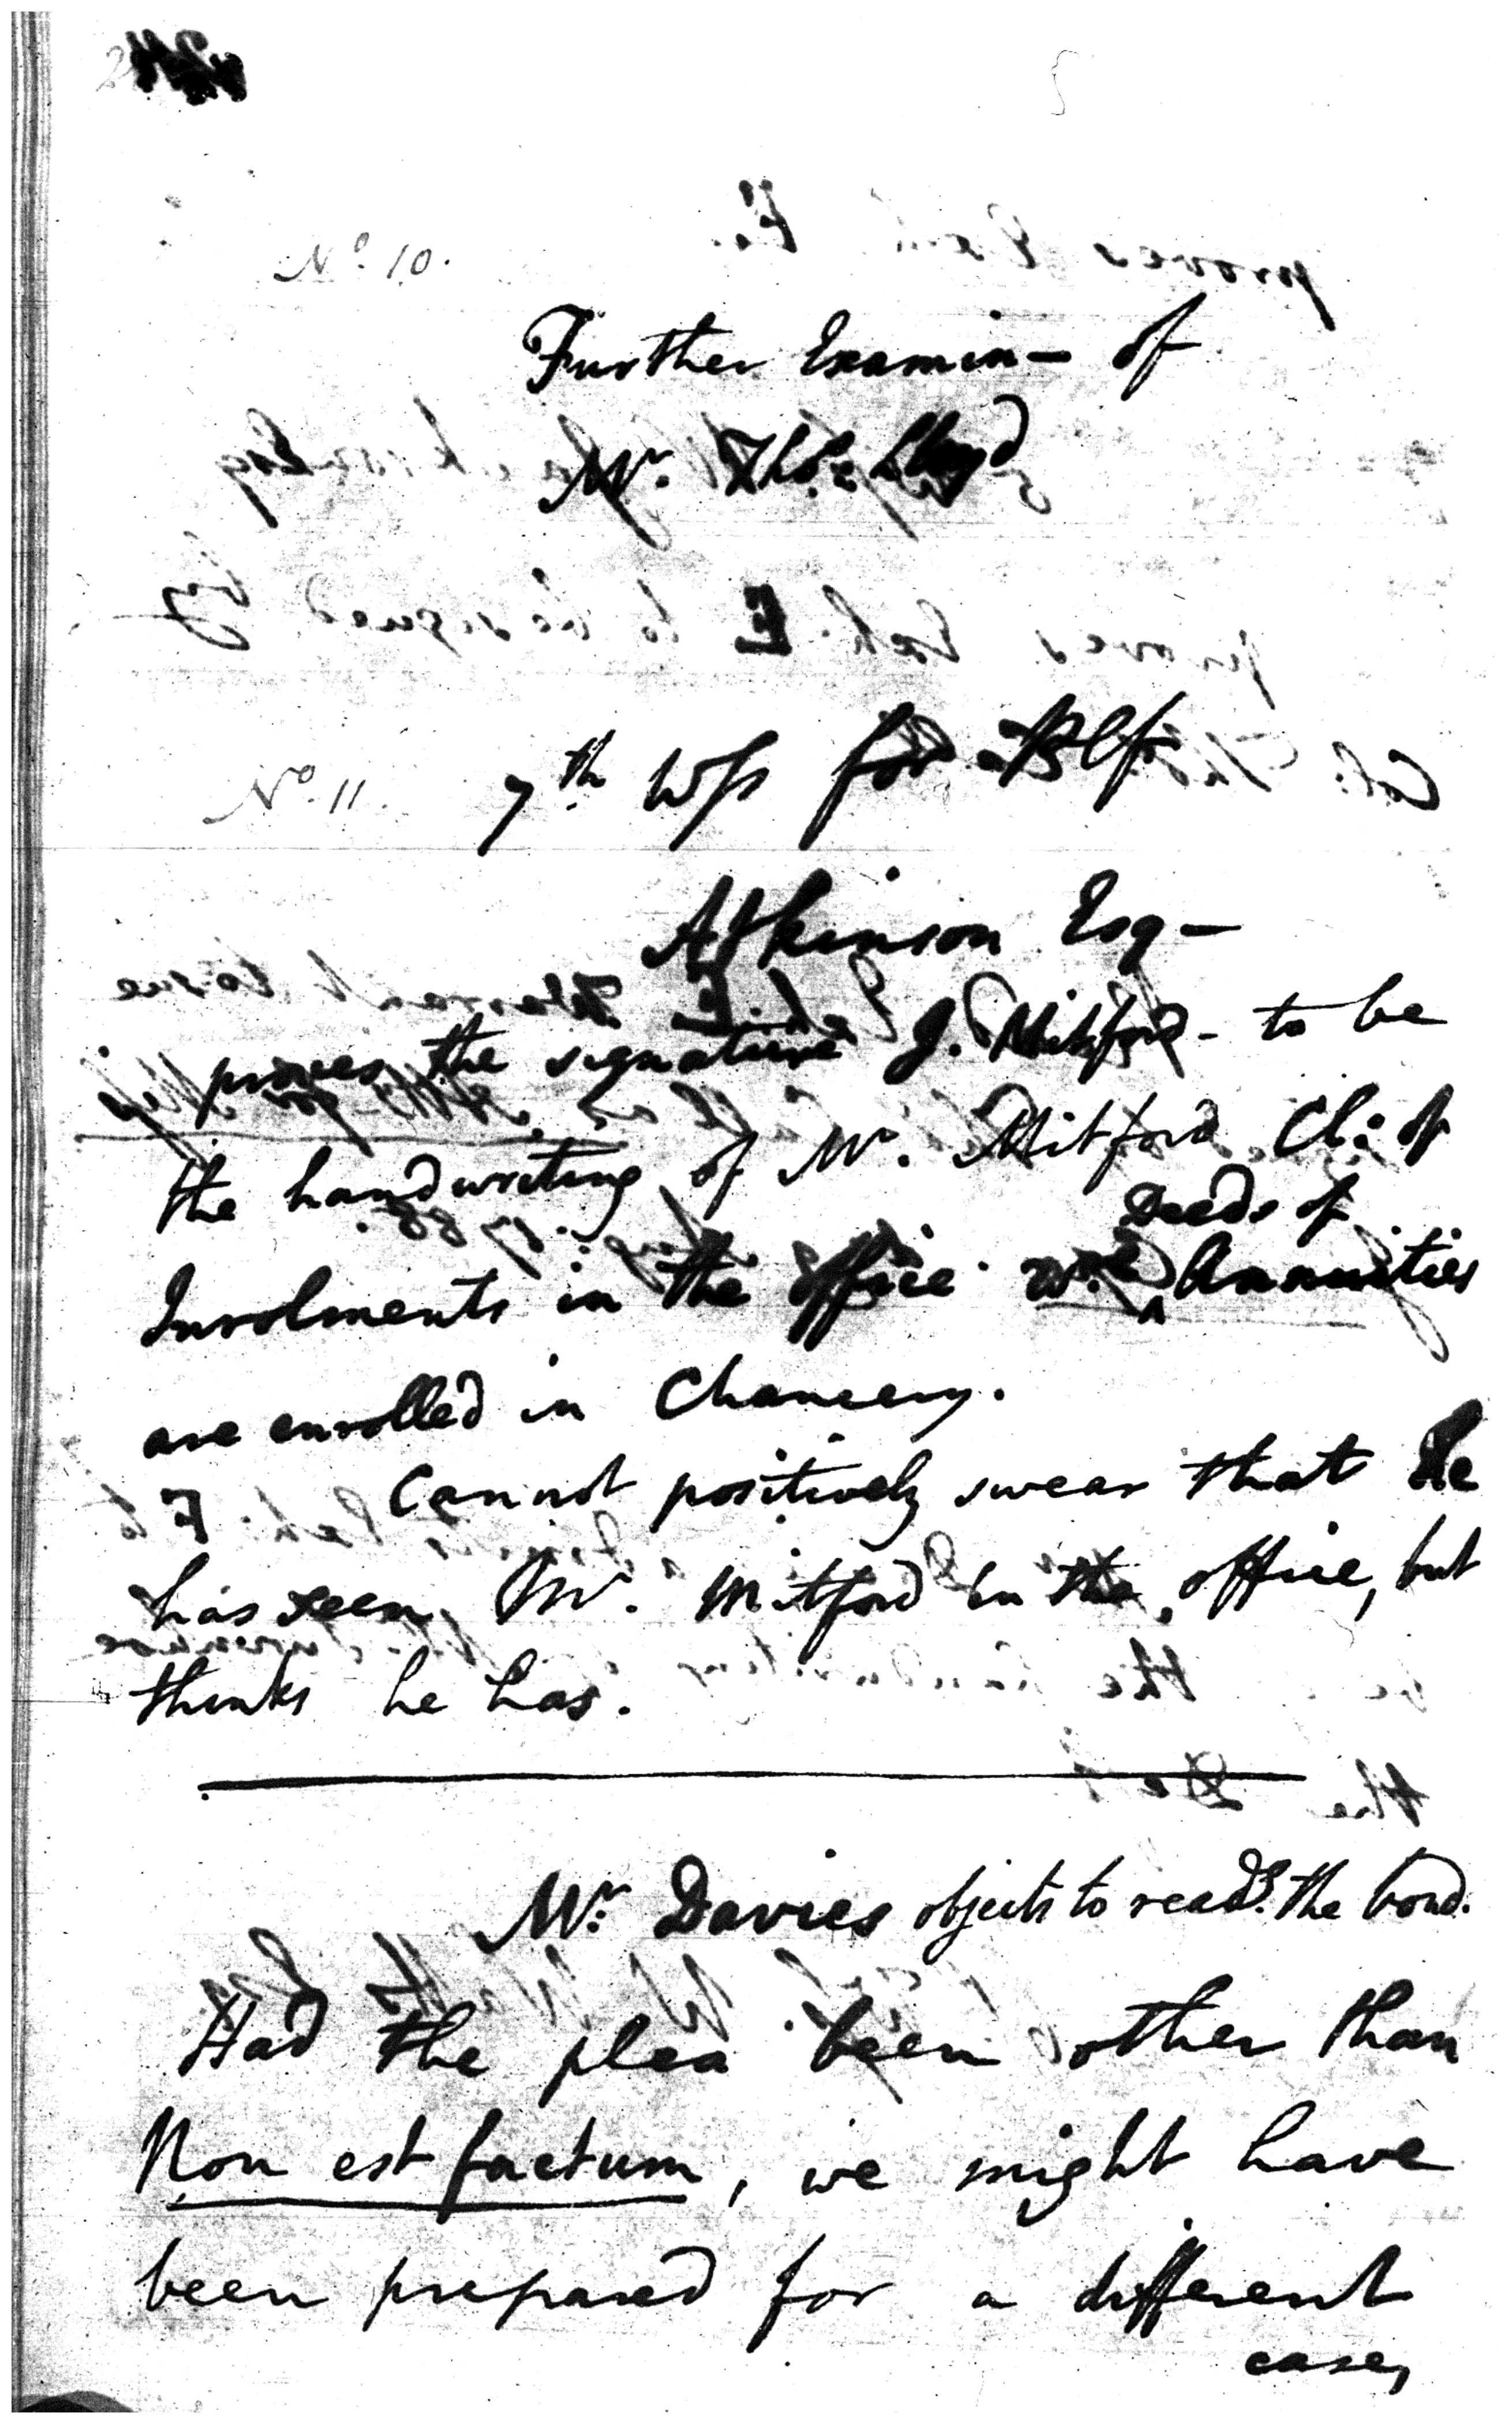 No. 10.
Further Examin— of
Mr. Thos. Lloyd
No. 11. 7th Wss for Plf
Atkinson Esq—
proves the signature J. Mitford - to be
the handwriting of Mr. Mitford Cl: of
Deeds of
Inrolments in the office ^ Annuities
are enrolled in Chancery.
Cannot positively swear that he
has seen Mr. Mitford in the office, but
thinks he has.
Mr. Davies objects to readg. the bond.
Had the plea been other than
Non est factum, we might have
been prepared for a different
case,